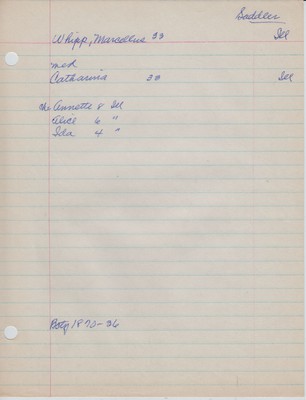 Saddler
Whipp, Marcellus 33 Ill
med
Catharina 33 Ill
che Annette 8 Ill
Elice 6 "
Ida 4 "
1870-36